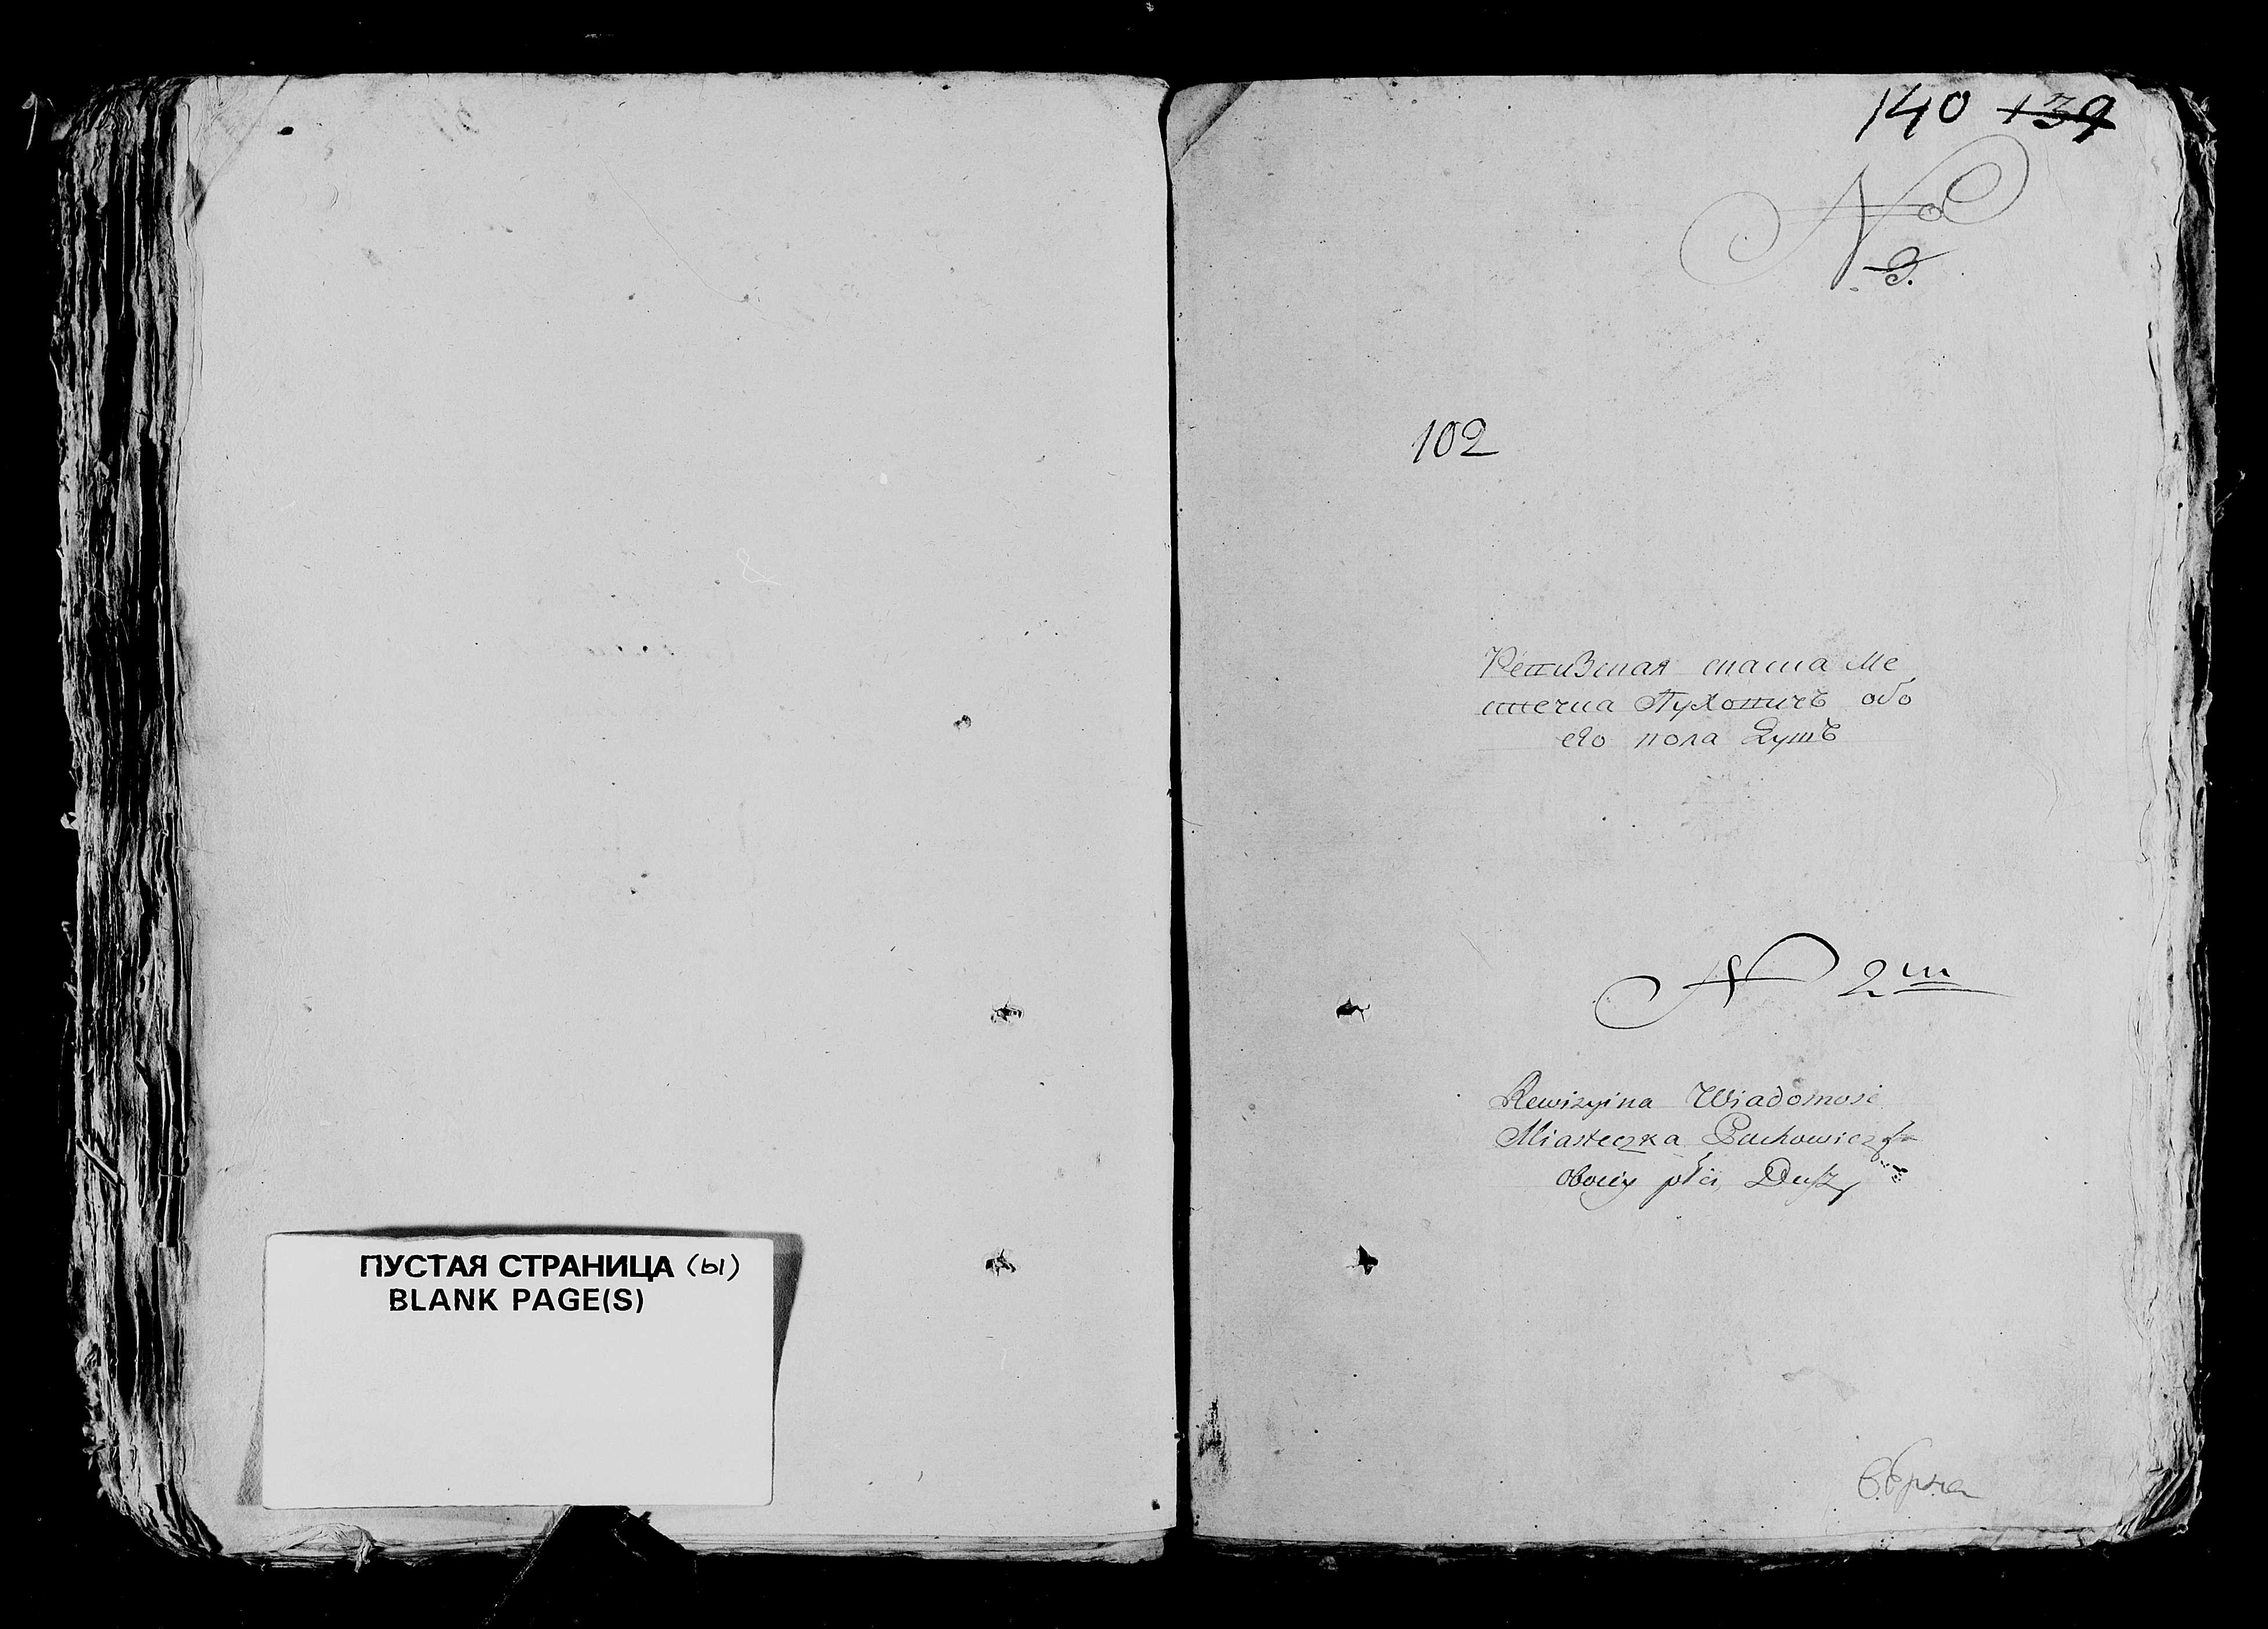 ПУСТАЯ СТРАНИЦА (ы)
BLANK PAGE(S)
140 139
№
3.
102
Ревизская скаска Ме
стечка Пуховичъ обо
его пола Душъ
N 2
Rewizyina Wiadomosc
Miasteczka Puchowicz
oboiey płci Duszy